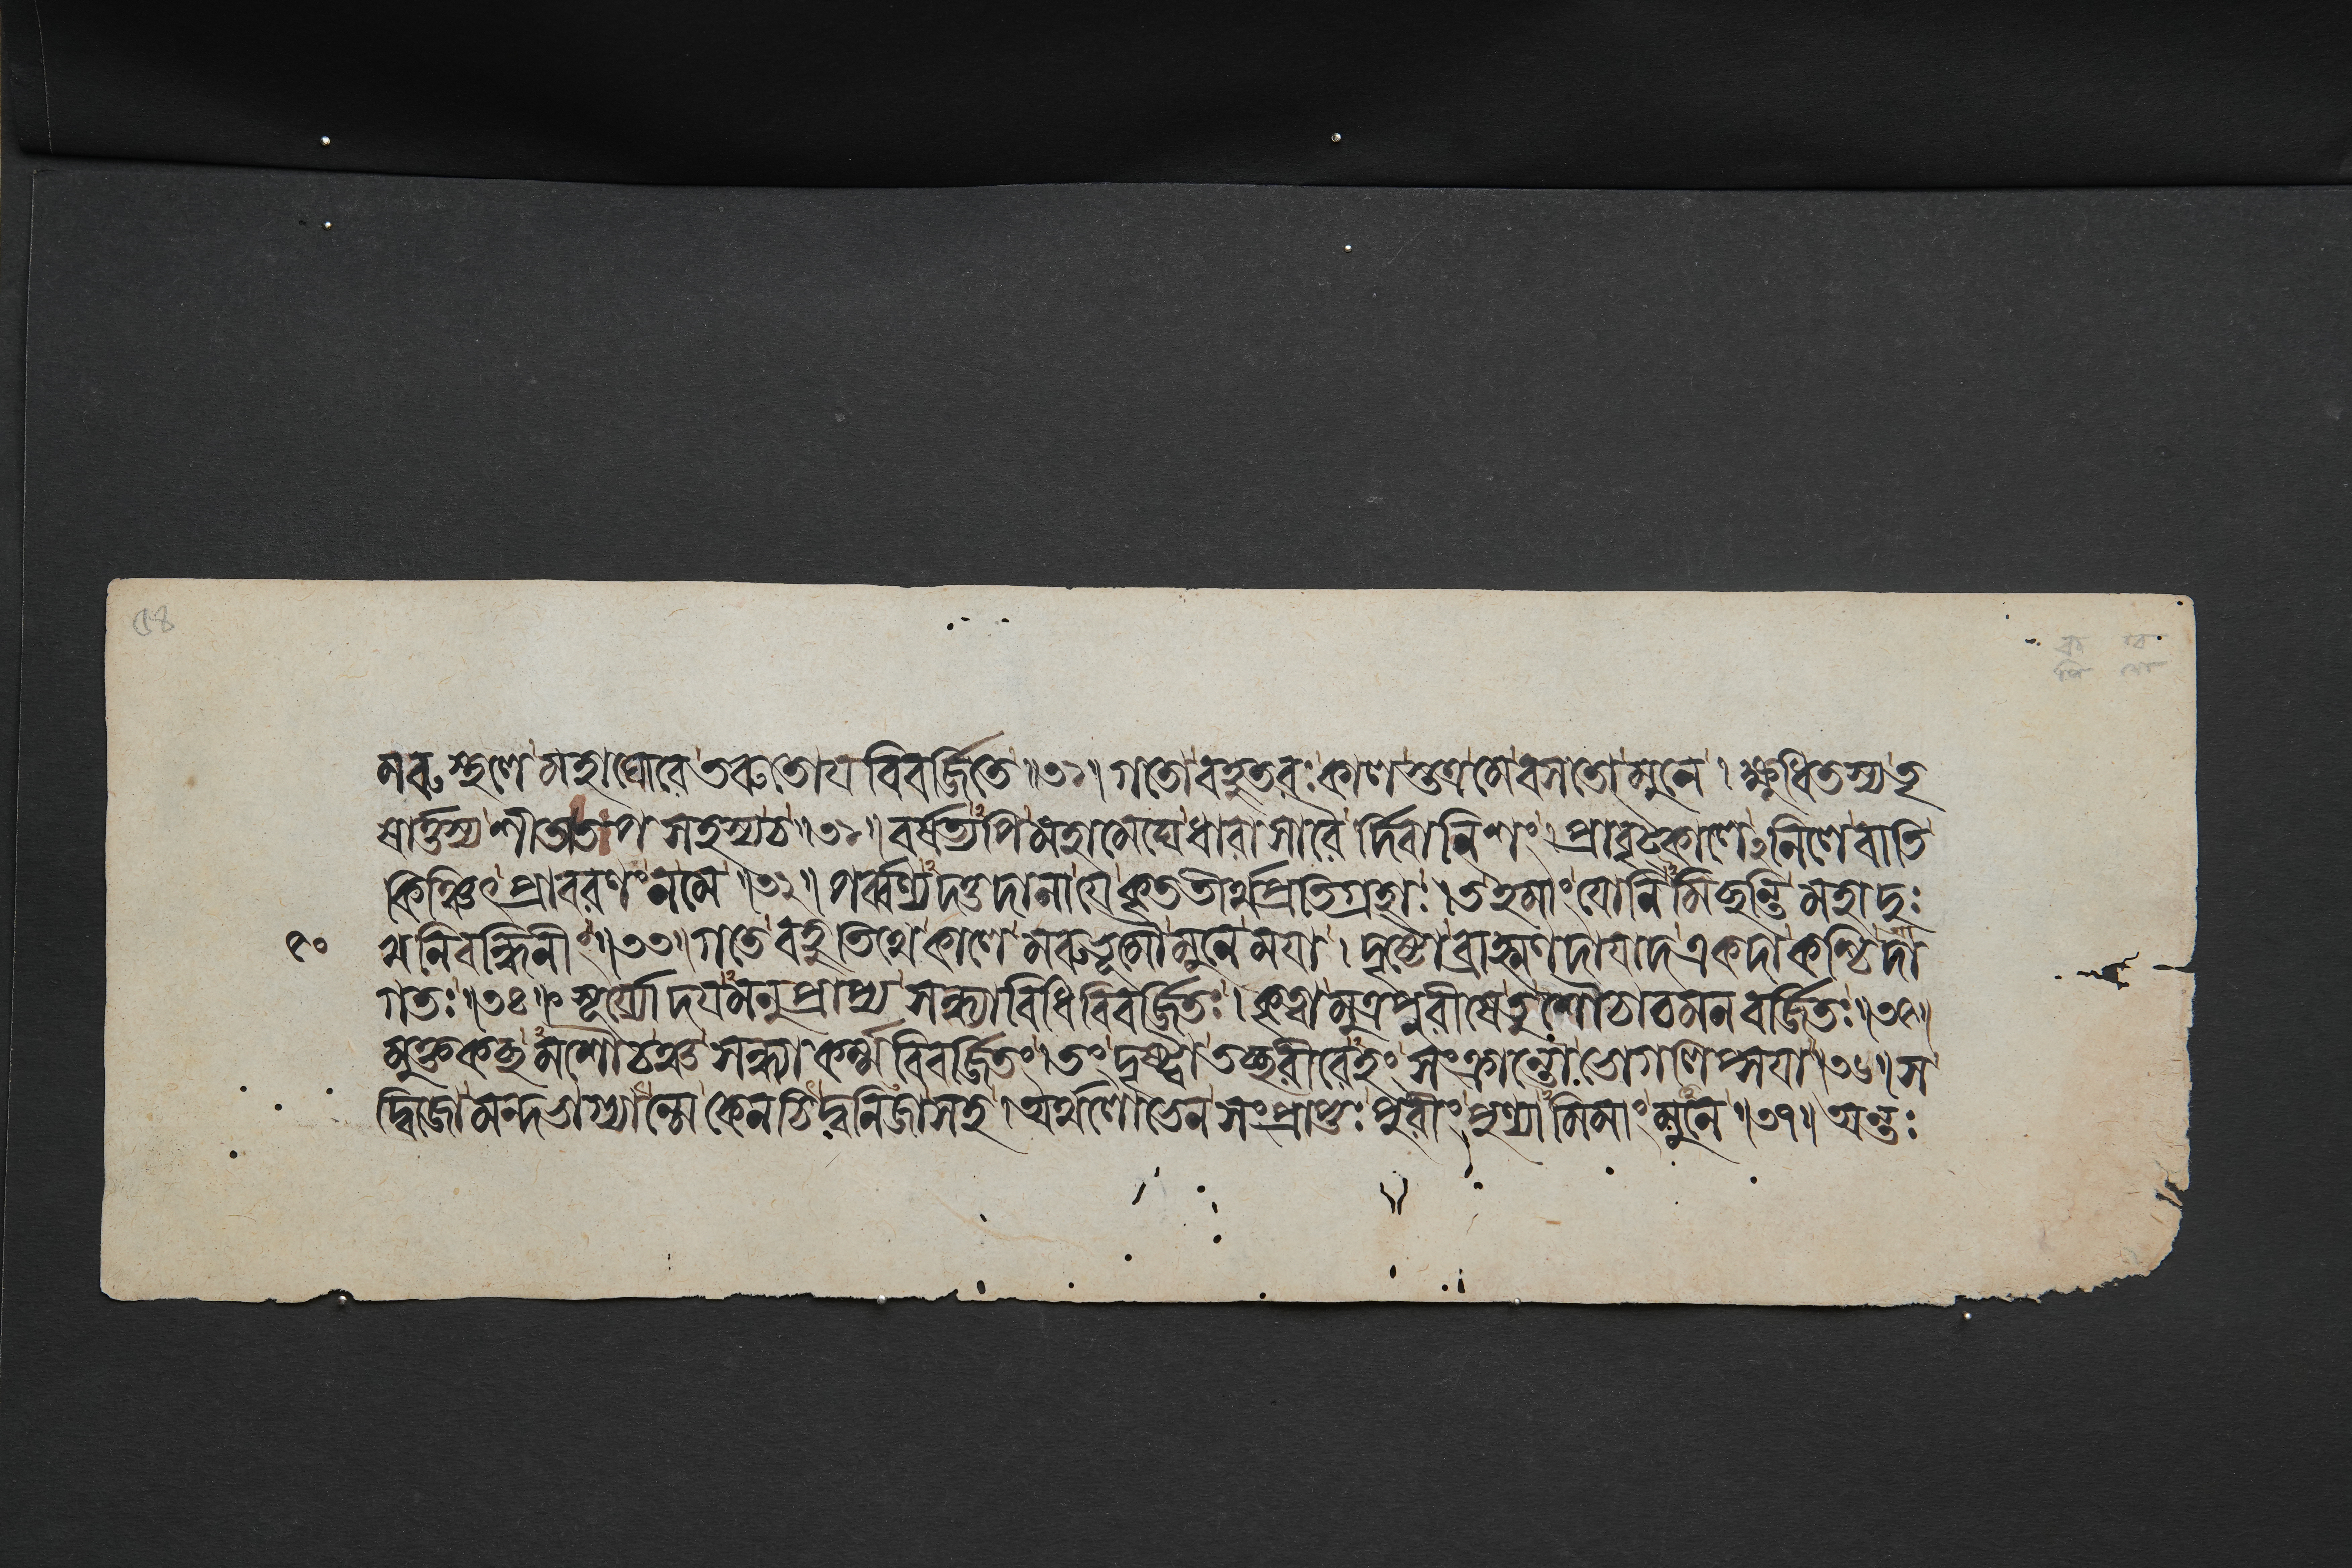 ৫৪
মরুস্থলে মহাঘোরে তরুতোয বিবর্জ্জিতে ॥৩০॥ গতো বহুতরঃ কাল স্তত্র মে বসতো মুনে । ক্ষুধিতস্য তৃ
ষার্ত্তস্য শীততাপ সহস্য চ ॥৩১॥ বর্ষত্যপি মহামেঘে ধারাসারৈ র্দিবানিশং । প্রাবৃট্কালে ঽনিলে বাতি
কিঞ্চিৎ প্রাবরণং ন মে ॥৩২॥ পর্ব্বণ্যদত্তদানা যে কৃততীর্থপ্রতিগ্রহাঃ । ত ইমাং যোনিমিচ্ছন্তি মহাদুঃ
খনিবন্ধিনীং ॥৩৩॥ গতে বহুতিথে কালে মরুভূমৌ মুনে মযা । দৃষ্টো ব্রাহ্মণদাযাদ একদা কশ্চিদা
গতঃ ॥৩৪॥ সূর্য্যোদযমনুপ্রাপ্য সন্ধ্যাবিধিবিবর্জ্জিতঃ । কৃত্বা মূত্রপুরীষে তু শৌচাচমনবর্জ্জিতঃ ॥৩৫॥
মুক্তকচ্ছমশৌচঞ্চ সন্ধ্যাকর্ম্মবিবর্জ্জিতং । তং দৃষ্ট্বা তচ্ছরীরেহং সংক্রান্তো ভোগলিপ্সযা ॥৩৬॥ স
দ্বিজো মন্দভাগ্যান্মে কেনচিদ্বনিজা সহ । অর্থলোভেন সংপ্রাপ্তঃ পুরীং পুণ্যামিমাং মুনে ॥৩৭॥ অন্তঃ